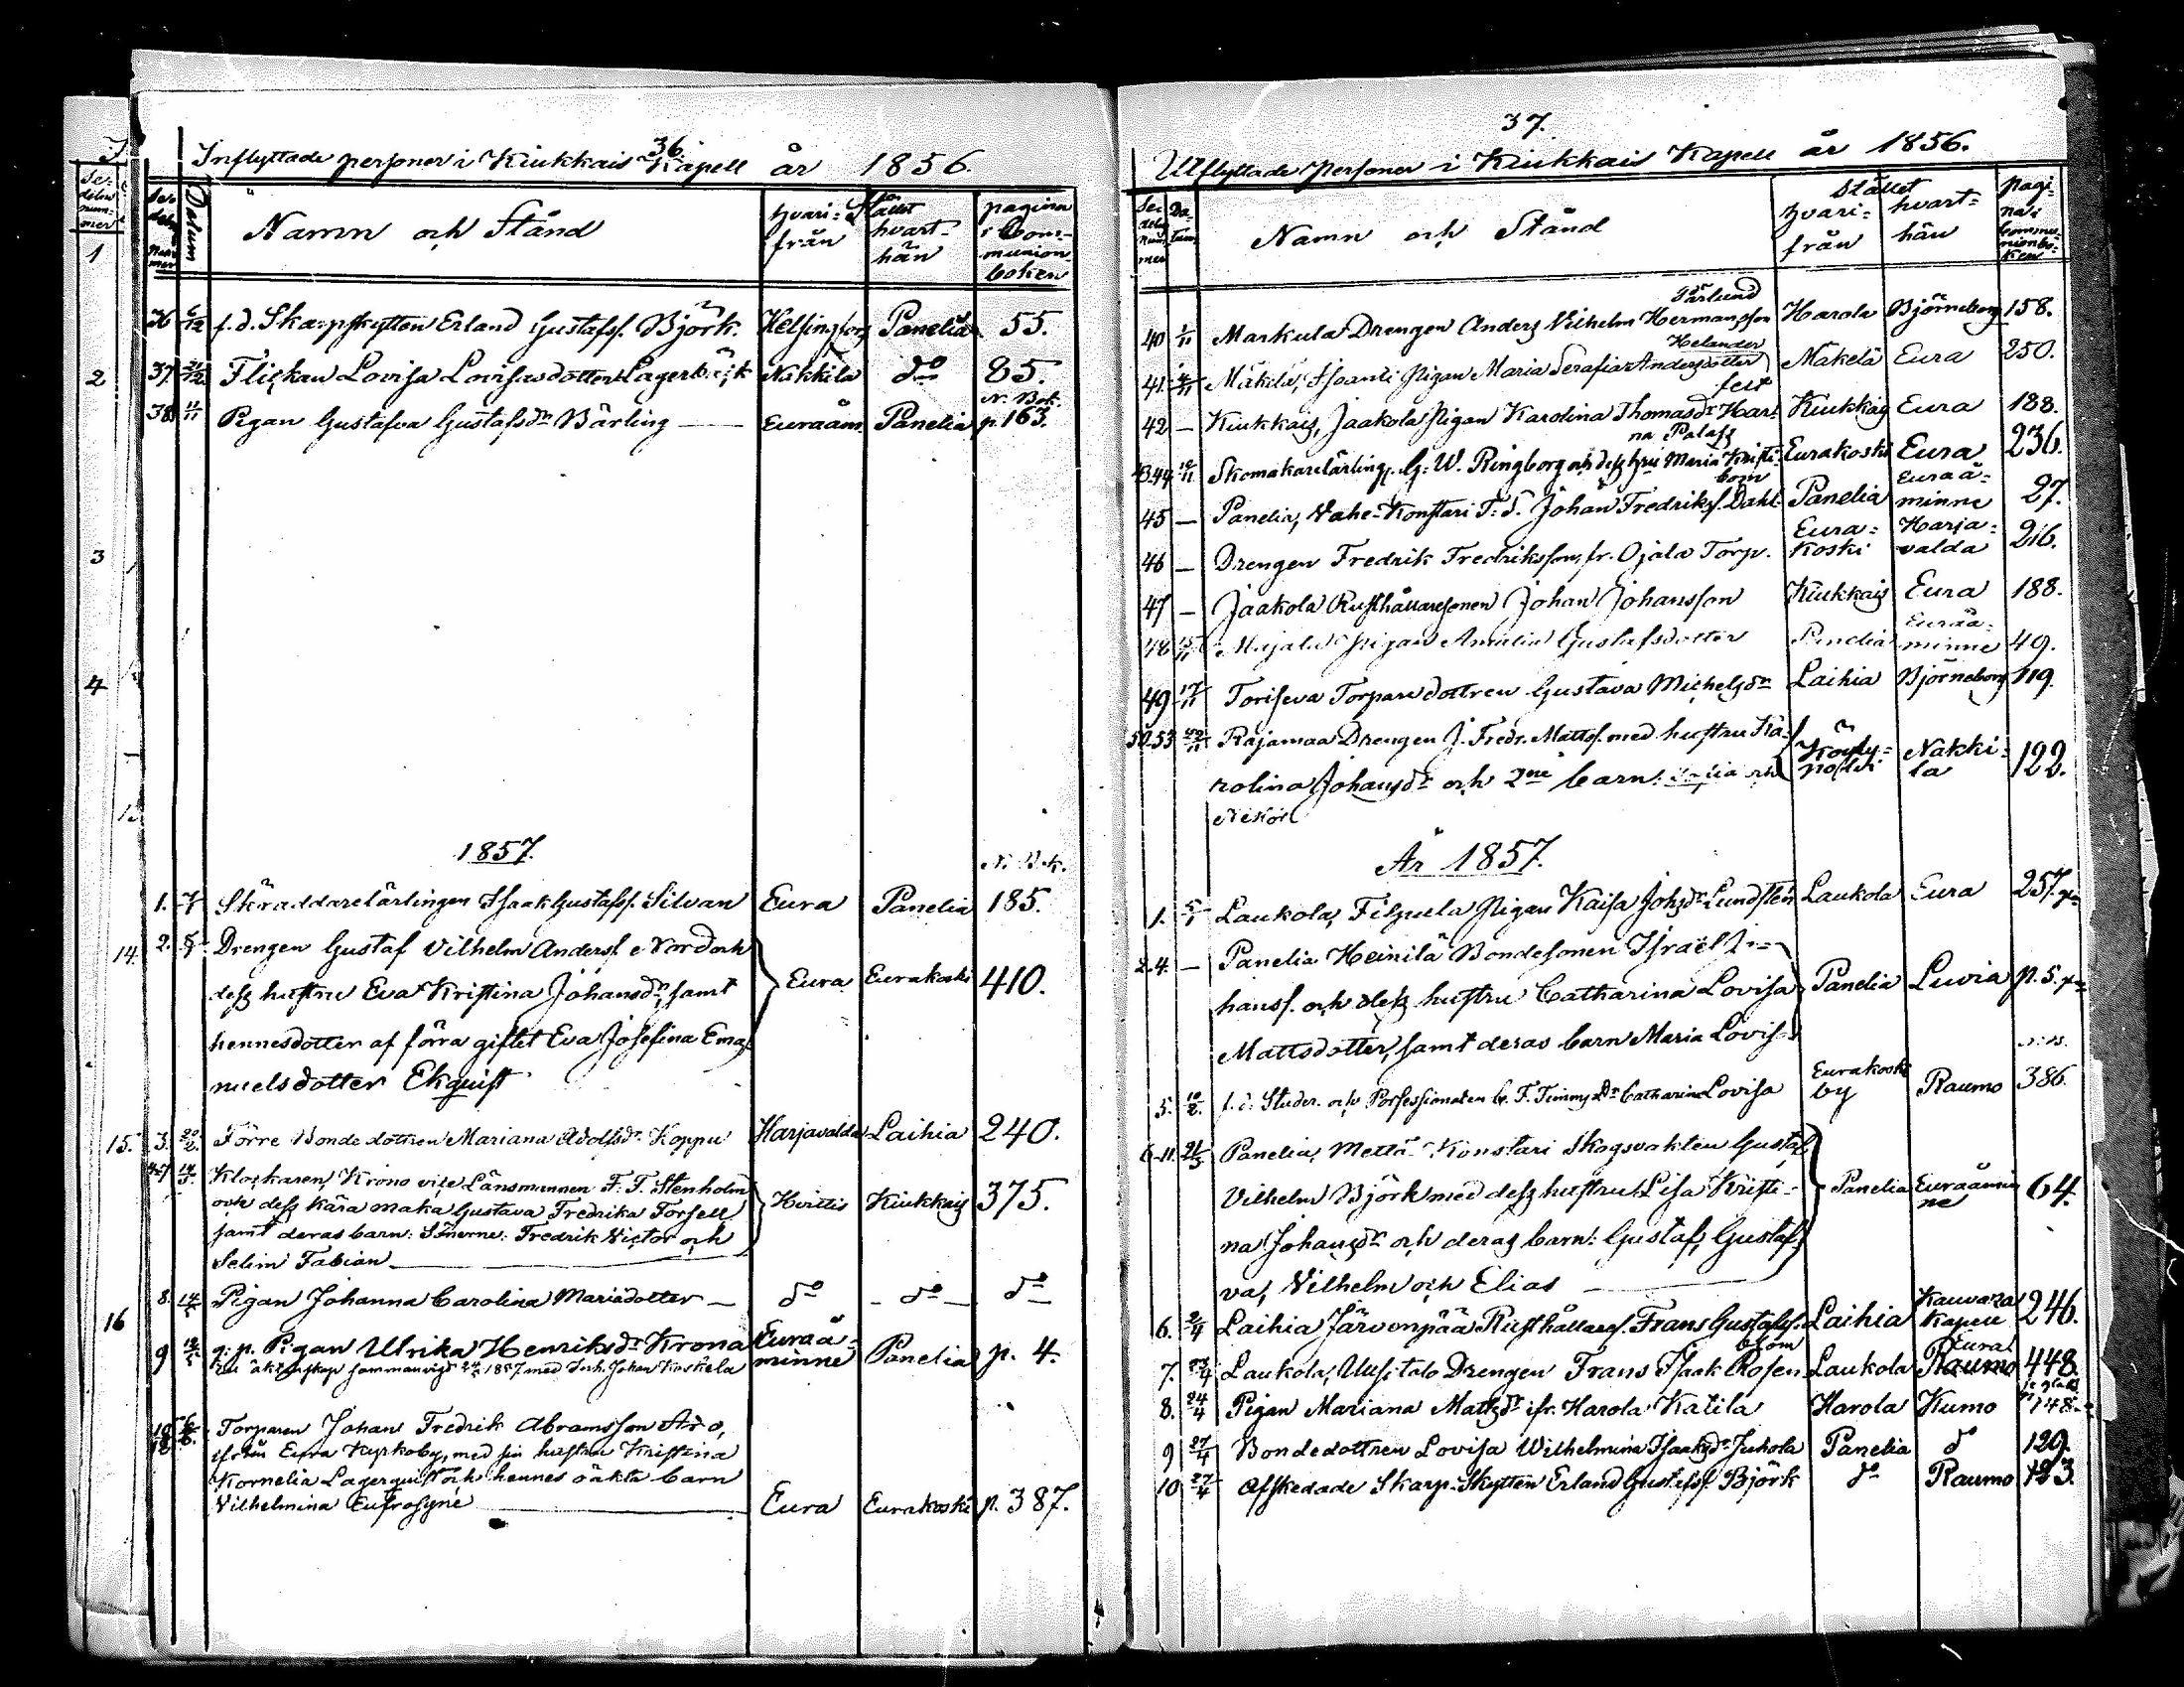 36.
Inflyttade personer i Kiukkais Kapell år 1856.
Sedelns Nummer
Datum
Namn och Stånd
Stället
hvari-från
hvart-hän
pagina i Communion-boken
36 6/12 f.d. Skarpskytten Erland Gustafss. Björk. Helsingfors Panelia 55.
37 Flickan Lovisa Lovisasdotter Lagerbäck Nakkila do 85.
N. Bok.
38 11/11 Pigan Gustafva Gustafsdr Bärling — Euraåm. Panelia p. 163.
1857.
1. 7/1 Skräddarelärlingen Isaak Gustafss. Silvan Eura Panelia 185.
2. Drengen Gustaf Vilhelm Anderss. Nord och
dess hustru Eva Kristina Johansdr, samt Eura Eurakoski 410.
hennes dotter af förra giftet Eva Josefina Ema-
nuelsdotter Ekquist
3. 20/2 Förre Bondedottren Mariana Adolfsdr Koppu Harjavalda Laihia 240.
4-7 14/3 Klockaren, Krono vice Länsmannen F. F. Stenholm
och dess kära maka Gustava Fredrika Forsell Hvittis Kiukkais 375.
samt deras barn: Sönerne: Fredrik Victor och
Selim Fabian —
8. Pigan Johanna Carolina Mariadotter — do — do — do
9 g. p. Pigan Ulrika Henriksdr Krona Euraå-minne Panelia p. 4.
1857 med Inh. Johan Koskela
10 12 Torparen Johan Fredrik Abramsson Aro,
ifrån Eura Kyrkoby, med sin hustru Kristina
Kornelia Lagerquist och hennes oäkta barn
Vilhelmina Eufrosyne — Eura Eurakoski p. 387.
37.
Utflyttade Personer i Kiukkais Kapell år 1856.
Sedelns Nummer
Datum
Namn och Stånd
Stället
hvari-från
hvart-hän
pagina i communionboken
Färlund
40 1/11 Markula Drengen Anders Vilhelm Hermansson Harola Björneborg 158.
Helander
41. Mäkelä, Isoanti Pigan Maria Serafia Andersdotter Mäkelä Eura 250.
felt
42 — Kiukkais, Jaakola Pigan Karolina Thomasdr Har- Kiukkais Eura 188.
na Palass
43.44 10/11 Skomakarelärling. G. W. Ringborg och dess hru Maria Kristi- Eurakoski Eura 236.
bom
45 — Panelia, Vahe-Konstari T. d. Johan Fredrikss. Dahl- Panelia Euraå-minne 27.
46 — Drengen Fredrik Fredriksson, fr. Ojala Torp. Eura-koski Harja-valda 216.
47 — Jaakola Rusthållaresonen Johan Johansson Kiukkais Eura 188.
48 15/11 Majala Pigan Amalia Gustafsdotter Panelia Euraå-minne 49.
49 17/11 Toriseva Torparedottren Gustava Michelsdr Laihia Björneborg 119.
50.53 Rajamaa Drengen J. Fredr. Mattss. med hustru Ka-
rolina Johansdr och 2ne barn: Nakki-la 122.
År 1857.
1. 5/1 Laukola, Filpula Pigan Kaisa Johsdr Lundsten Laukola Eura 257.
2.4. — Panelia Heinilä Bondesonen Israel Jo-
hanss. och dess hustru Catharina Lovisa Panelia Luvia p. 5.
Mattsdotter, samt deras barn Maria Lovisa
5. 10/2. f.d. Studer. och Catharina Lovisa Eurakoski by Raumo 386.
6-11. 21/3 Panelia, Mettä-Konstari Skogsvakten Gustaf
Vilhelm Björk med dess hustru Lisa Kristi- Panelia Euraåmin-ne 64.
na Johansdr och deras barn: Gustaf, Gustaf-
va, Vilhelm och Elias —
6. 2/4 Laihia Järvenpää Rusthållares. Frans Gustafss. Laihia Kauvatsa Kapell 246.
blom
7. 23/4 Laukola, Uusitalo Drengen Frans Isaak Rosen- Laukola Raumo Eura 448
8. 24/4 Pigan Mariana Mattsdr ifr. Harola Katila Harola Kumo 148.
9 27/4 Bondedottren Lovisa Wilhelmina Isaksdr Juhola Panelia do 129.
10 27/4 Afskedade Skarp-Skytten Erland Gustafss. Björk do Raumo 123.